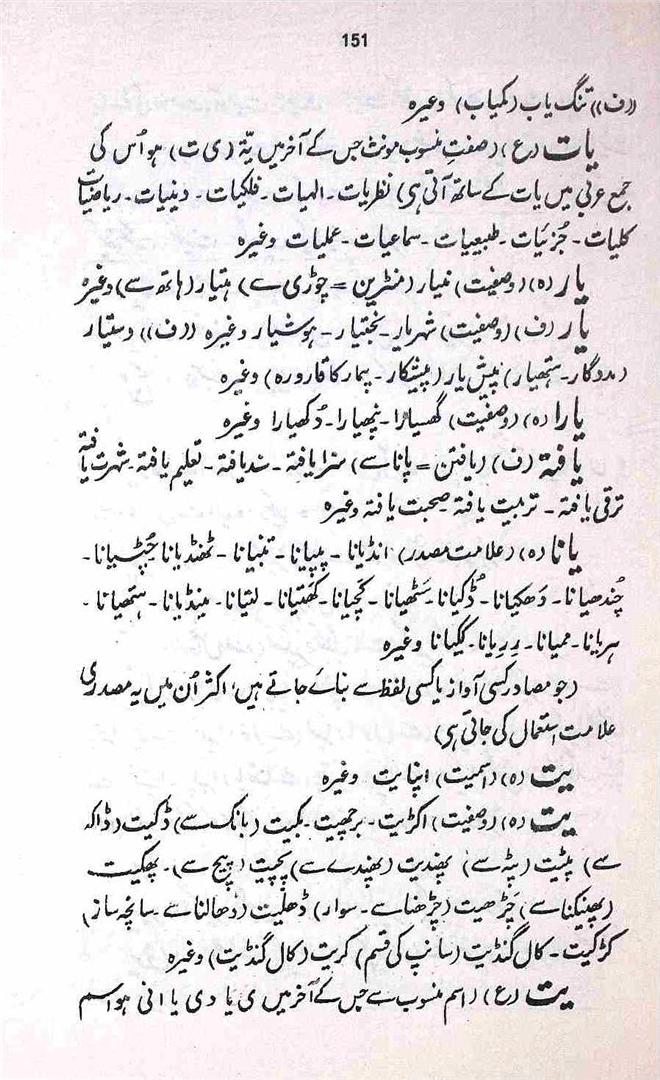 151
((ف)) تنگ یاب (کمیاب) وغیرہ
یات (ع) (صفتِ منسوب مونث جس کے آخر میں یّہ (ی ت) ہو اُس کی
جمع عربی میں یات کے ساتھ آتی ہی) نظریات۔ الہیات۔ فلکیات۔ دینیات۔ ریاضیات
کلیات۔ جُزئیات۔ طبیعیات۔ سماعیات۔ عملیات وغیرہ
یار (ہ) (وصفیت) نیار (منٹرین = چوڑی سے) ہتیار (ہاتھ سے) وغیرہ
یار (ف) (وصفیت) شہریار۔ بختیار۔ ہوشیار وغیرہ ((ف)) دستیار
(مددگار۔ ہتھیار) پیش یار (پیشکار۔ بیمار کا قارورہ) وغیرہ
یارا (ہ) (وصفیت) گھسیارا۔ نچھیارا۔ دُکھیارا وغیرہ
یافتہ (ف) (یافتن = پانا سے) سزا یافتہ۔ سند یافتہ۔ تعلیم یافتہ۔ شہرت یافتہ
ترقی یافتہ۔ تربیت یافتہ۔ صحبت یافتہ وغیرہ
یانا (ہ) (علامت مصدر) انڈیانا۔ پپیانا۔ تنیانا۔ ٹھنڈیانا چپٹیانا۔
چُندھیانا۔ دَھکیانا۔ ڈکیانا۔ سَٹھیانا۔ کچیانا۔ کھتیانا۔ لتیانا۔ مینڈیانا۔ ہتھیانا۔
ہریانا۔ ممیانا۔ رِریانا۔ ککیانا وغیرہ
(جو مصادر کسی آواز یا کسی لفظ سے بنائے جاتے ہیں، اکثر اُن میں یہ مصدری
علامت استعمال کی جاتی ہی)
یت (ہ) (اسمیت) اپنایت وغیرہ
یت (ہ) (وصفیت) اکڑیت۔ برچھیت۔ بکیت (بانک سے) ڈکیت (ڈاکہ
سے) پٹیت (پٹہ سے) پھندیت (پھندے سے) پچیت (پیچ سے)۔ پھکیت
(پھینکنا سے) چَڑھیت (چڑھنا سے۔ سوار) ڈھلیت (ڈھالنا سے۔ سانچہ ساز)
کڑکیت۔ کال گنڈیت (سانپ کی قسم) کریت (کال گنڈیت) وغیرہ
یت (ع) (اسم منسوب سے جس کے آخر میں ی یا دی یا انی ہو اسم